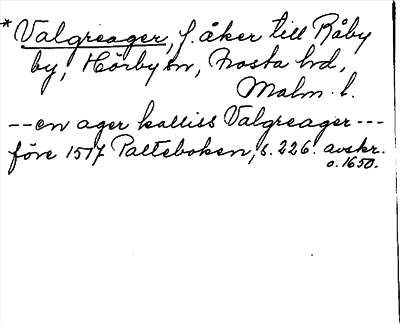 * Valgreager, f. åker till Råby
by, Hörby sn, Frosta hd,
Malm. l.
--en ager kalliss Valgreager---
före 1517 Palteboken, s. 226. avskr.
o. 1650.